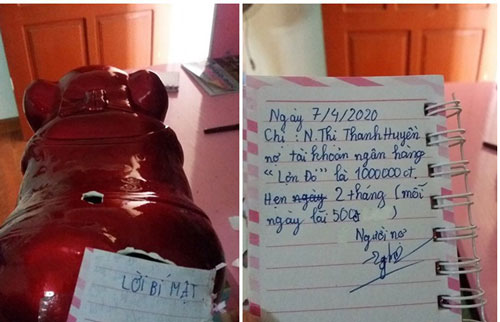 LỜI BÍ MẬT
Ngày 7/4/2020
Chị : N. Thị Thanh Huyền
nợ tài khoản ngân hàng
"Lợn Đỏ" là 1000000 đ.
Hẹn ngày 2 tháng (mỗi
ngày lãi 500đ )
Người nợ